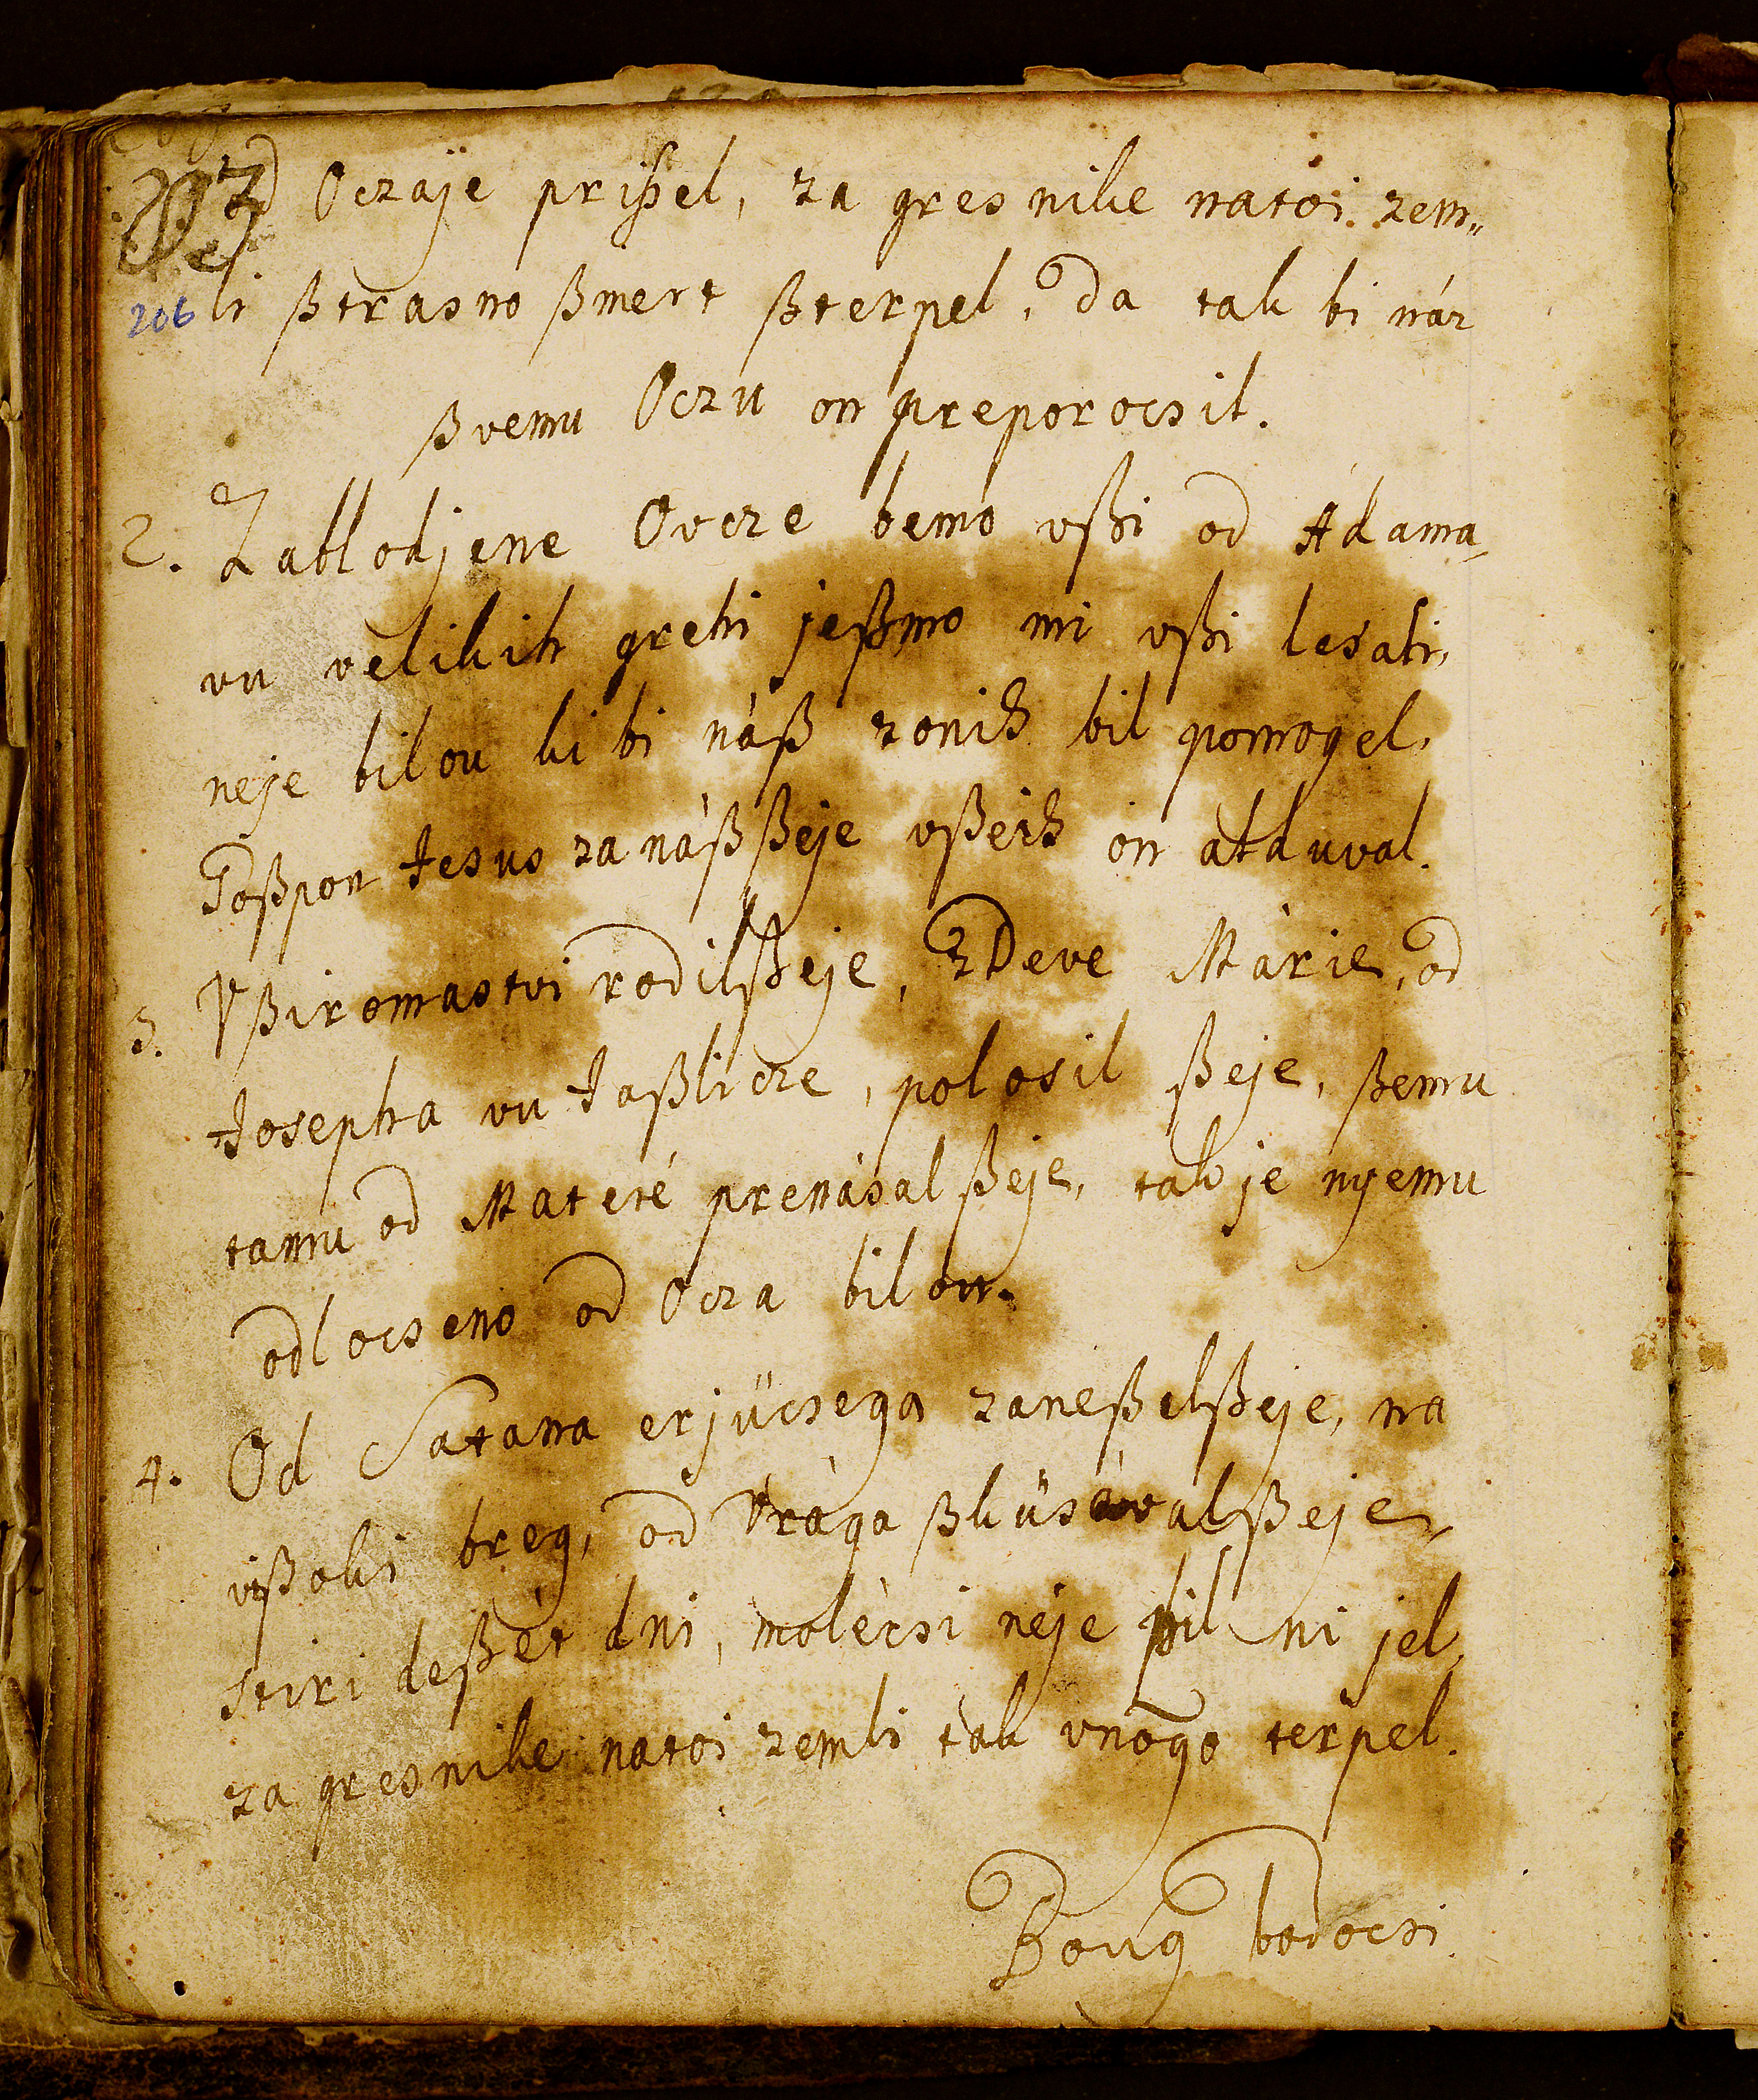 od Oczaje prißel, za gresnike natoi zem„
206 li ßtrasno ßmert ßterpel, da tak bi nár
ßvemu Oczu on preporocsil.
2. Zablodjene Ovcze bemo vßi od Adama,
vu velikih grehi jeßmo mi vßi lesali,
neje bilou ki bi náß zonih bil pomogel,
Goßpon Jesus za náß ßeje vßeih on alduval.
3. Vßiromastvi rodilßeje, zDeve Márie, od
Josepha vu Jaßlicze, polosil ßeje, ßemu
tamu od Materé prenásal ßeje, tak je nyemu
odlocseno od Ocza bilou.
4. Od Satana erjücsega zaneßelßeje, na
vißoki breg, od Vrága ßküsávalßeje,
stiri deßét dni, molécsi neje pil ni jel,
za gresnike natoi zemli tak vnogo terpel.
Boug bodocsi